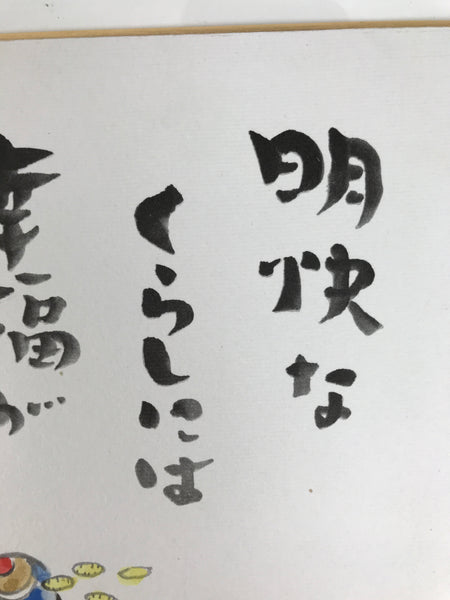 明快な
くらしには
幸福が